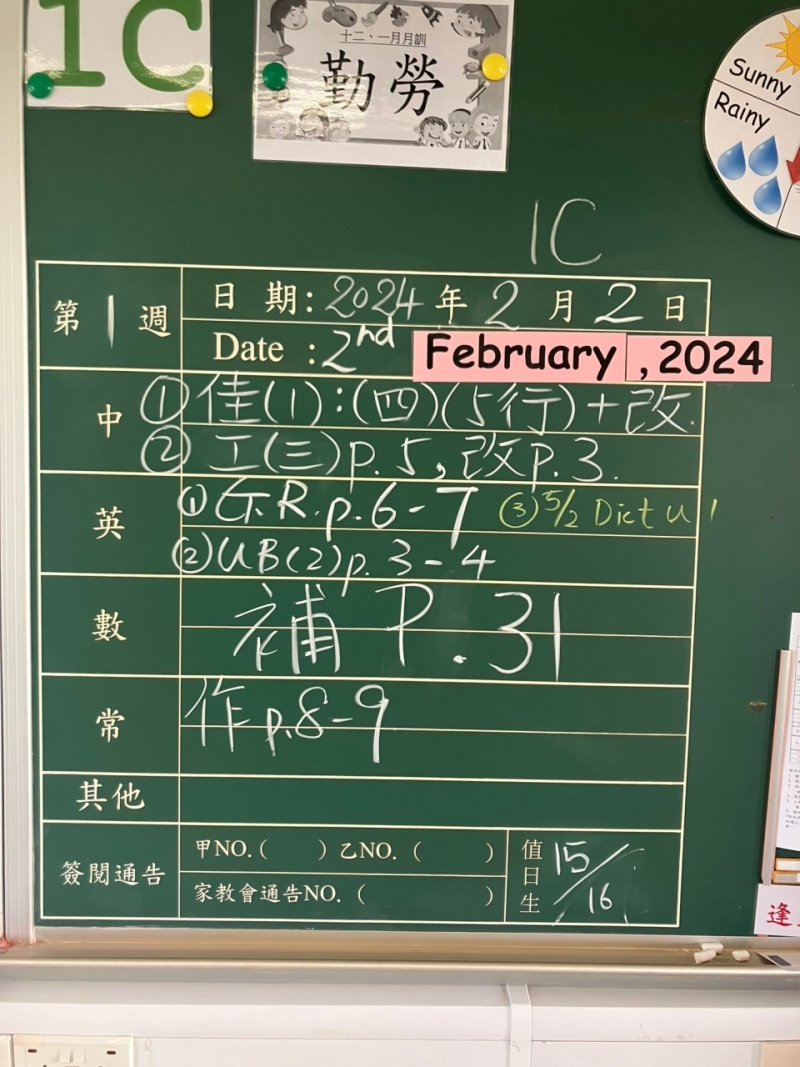 1C
十二、一月月訓
勤勞
Sunny
Rainy
1C
第1週
日 期：2024年2月2日
Date : 2nd February, 2024
中
① 佳(1):(四)(5行)+改.
② 工(三)p.5,改p.3.
英
① G.R. p.6-7 ③ 5/2 Dict U1
② UB(2)p. 3-4
數
補 P.31
常
作 p.8-9
其他
簽閱通告
甲NO.( ) 乙NO. ( )
家教會通告NO. ( )
值日生
15/16
逢